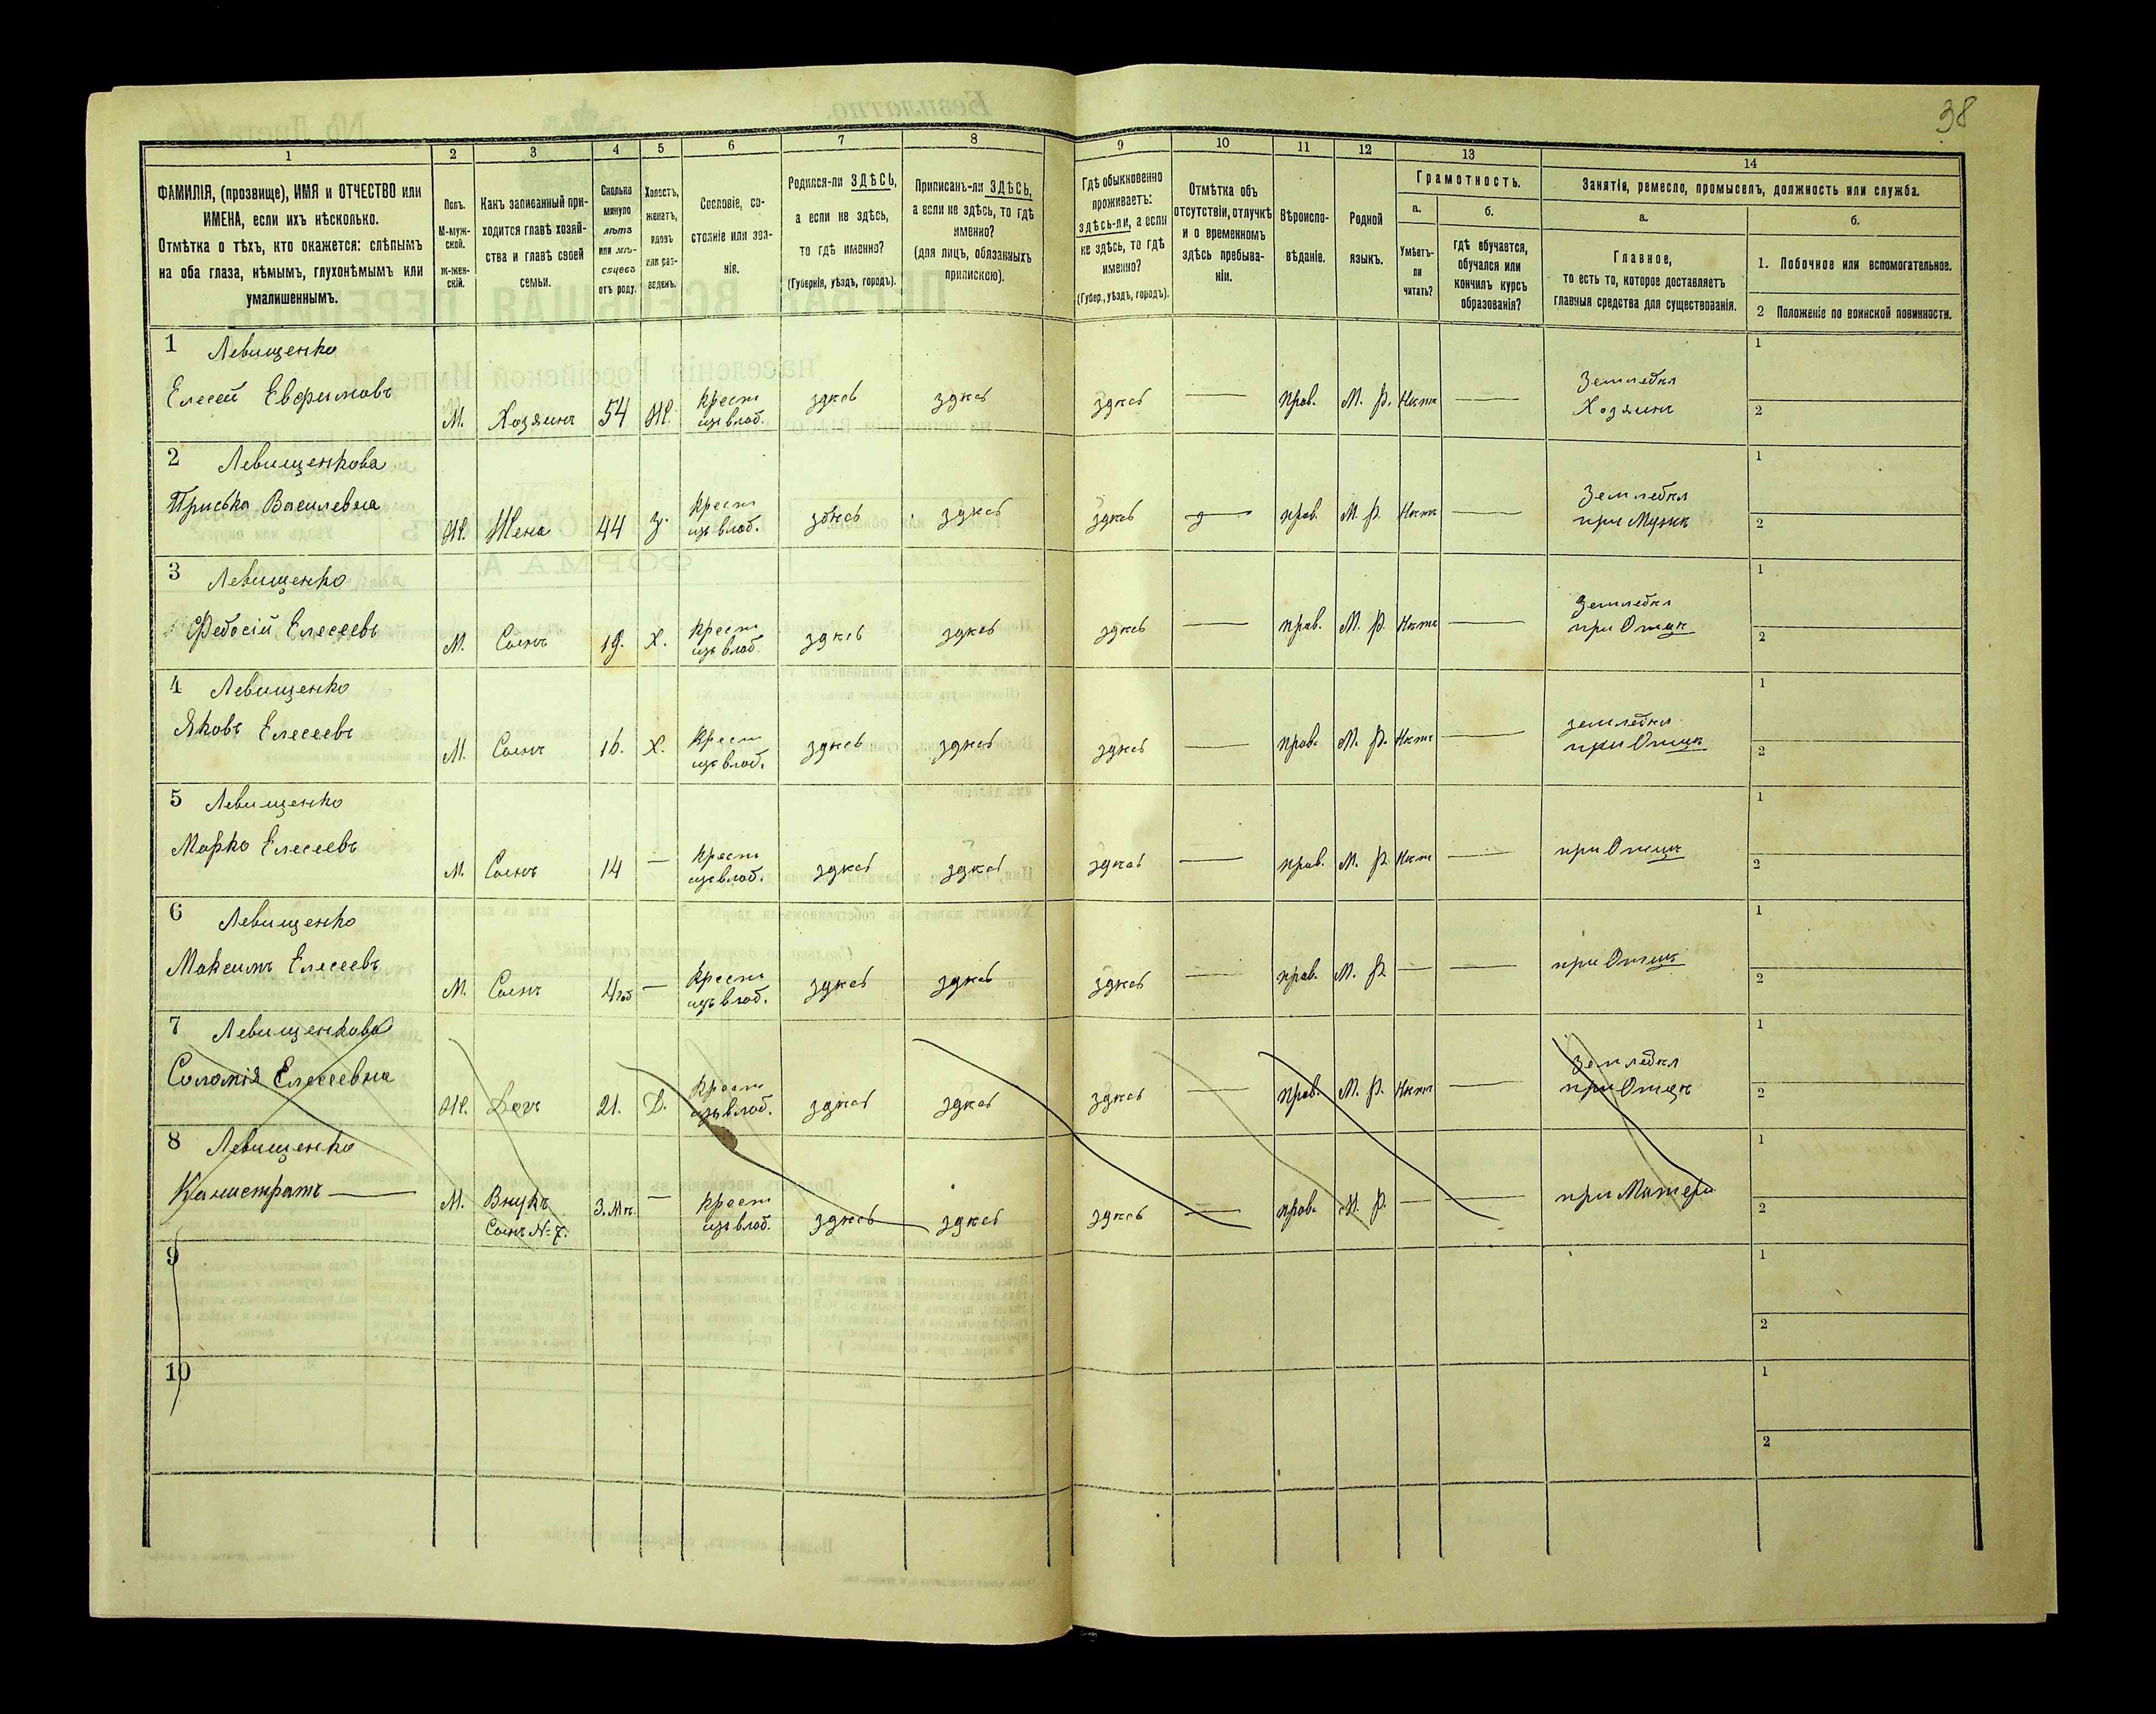 38
1 2 3 4 5 6 7 8 9 10 11 12 13 14
ФАМИЛІЯ, (прозвище), ИМЯ и ОТЧЕСТВО или
ИМЕНА, если ихъ нѣсколько.
Отмѣтка о тѣхъ, кто окажется: слѣпымъ
на оба глаза, нѣмымъ, глухонѣмымъ или
умалишеннымъ.
Полъ.
М-муж-
ской.
Ж-жен-
скій.
Какъ записанный при-
ходится главѣ хозяй-
ства и главѣ своей
семьи.
Сколько
минуло
лѣтъ
или мѣ-
сяцевъ
отъ роду.
Холостъ,
женатъ,
вдовъ
или раз-
веденъ.
Сословіе, со-
стояніе или зва-
ніе.
Родился-ли ЗДѢСЬ,
а если не здѣсь,
то гдѣ именно?
(Губернія, уѣздъ, городъ).
Приписанъ-ли ЗДѢСЬ,
а если не здѣсь, то гдѣ
именно?
(для лицъ, обязанныхъ
припискою).
Гдѣ обыкновенно
проживаетъ:
здѣсь-ли, а если
не здѣсь, то гдѣ
именно?
(Губер., уѣздъ, городъ).
Отмѣтка объ
отсутствіи, отлучкѣ
и о временномъ
здѣсь пребыва-
ніи.
Вѣроиспо-
вѣданіе.
Родной
языкъ.
Грамотность.
а.
Умѣетъ-
ли
читать?
б.
гдѣ обучается,
обучался или
кончилъ курсъ
образованія?
Занятіе, ремесло, промыселъ, должность или служба.
а.
Главное,
то есть то, которое доставляетъ
главныя средства для существованія.
б.
1. Побочное или вспомогательное.
2 Положеніе по воинской повинности.
1 Левищенко
Елесей Евфимовъ
М. Хозяинъ 54 Ж. Крест
изъ влад. здѣсь здѣсь здѣсь — прав. М. Р. Нѣтъ — Земледѣл
Хозяинъ
1
2
2 Левищенкова
Приська Василевна
Ж. Жена 44 З. Крест
изъ влад. здѣсь здѣсь здѣсь — прав. М. Р. Нѣтъ — Земледѣл
при Мужѣ
1
2
3 Левищенко
Федосій Елесеевъ
М. Сынъ 19. Х. Крест
изъ влад. здѣсь здѣсь здѣсь — прав. М. Р. Нѣтъ — Земледѣл
при Отцѣ
1
2
4 Левищенко
Яковъ Елесеевъ
М. Сынъ 16. Х. Крест
изъ влад. здѣсь здѣсь здѣсь — прав. М. Р. Нѣтъ — земледѣл
при Отцѣ
1
2
5 Левищенко
Марко Елесеевъ
М. Сынъ 14 — Крест
изъ влад. здѣсь здѣсь здѣсь — прав. М. Р. Нѣт — при Отцѣ
1
2
6 Левищенко
Максимъ Елесеевъ
М. Сынъ 4 — Крест
изъ влад. здѣсь здѣсь здѣсь — прав. М. Р. — — при Отцѣ
1
2
7 Левищенкова
Соломія Елесеевна
Ж. Доч 21. Д. Крест
изъ влад. здѣсь здѣсь здѣсь — прав. М. Р. Нѣтъ — Земледѣл
при Отцѣ
1
2
8 Левищенко
Калистратъ —
М. Внукъ
Сынъ № 7. 3. Мѣ. — Крест
изъ влад. здѣсь здѣсь здѣсь — прав. М. Р. — — при Матери
1
2
9
1
2
10
1
2